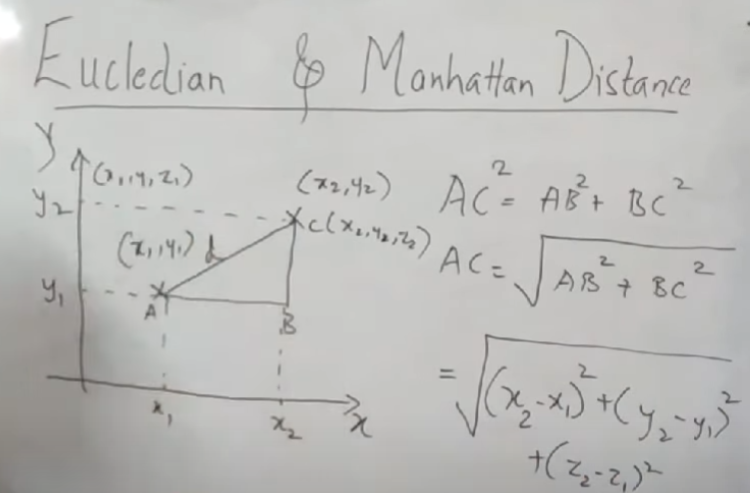 Eucledian & Manhattan Distance
y
(x₁,y₁,z₁)
(x₂,y₂)
y₂
C(x₂,y₂,z₂)
(x₁,y₁) d
y₁
A
B
x₁
x₂
x
AC² = AB² + BC²
AC = √(AB² + BC²)
= √((x₂-x₁)² + (y₂-y₁)²
+(z₂-z₁)²